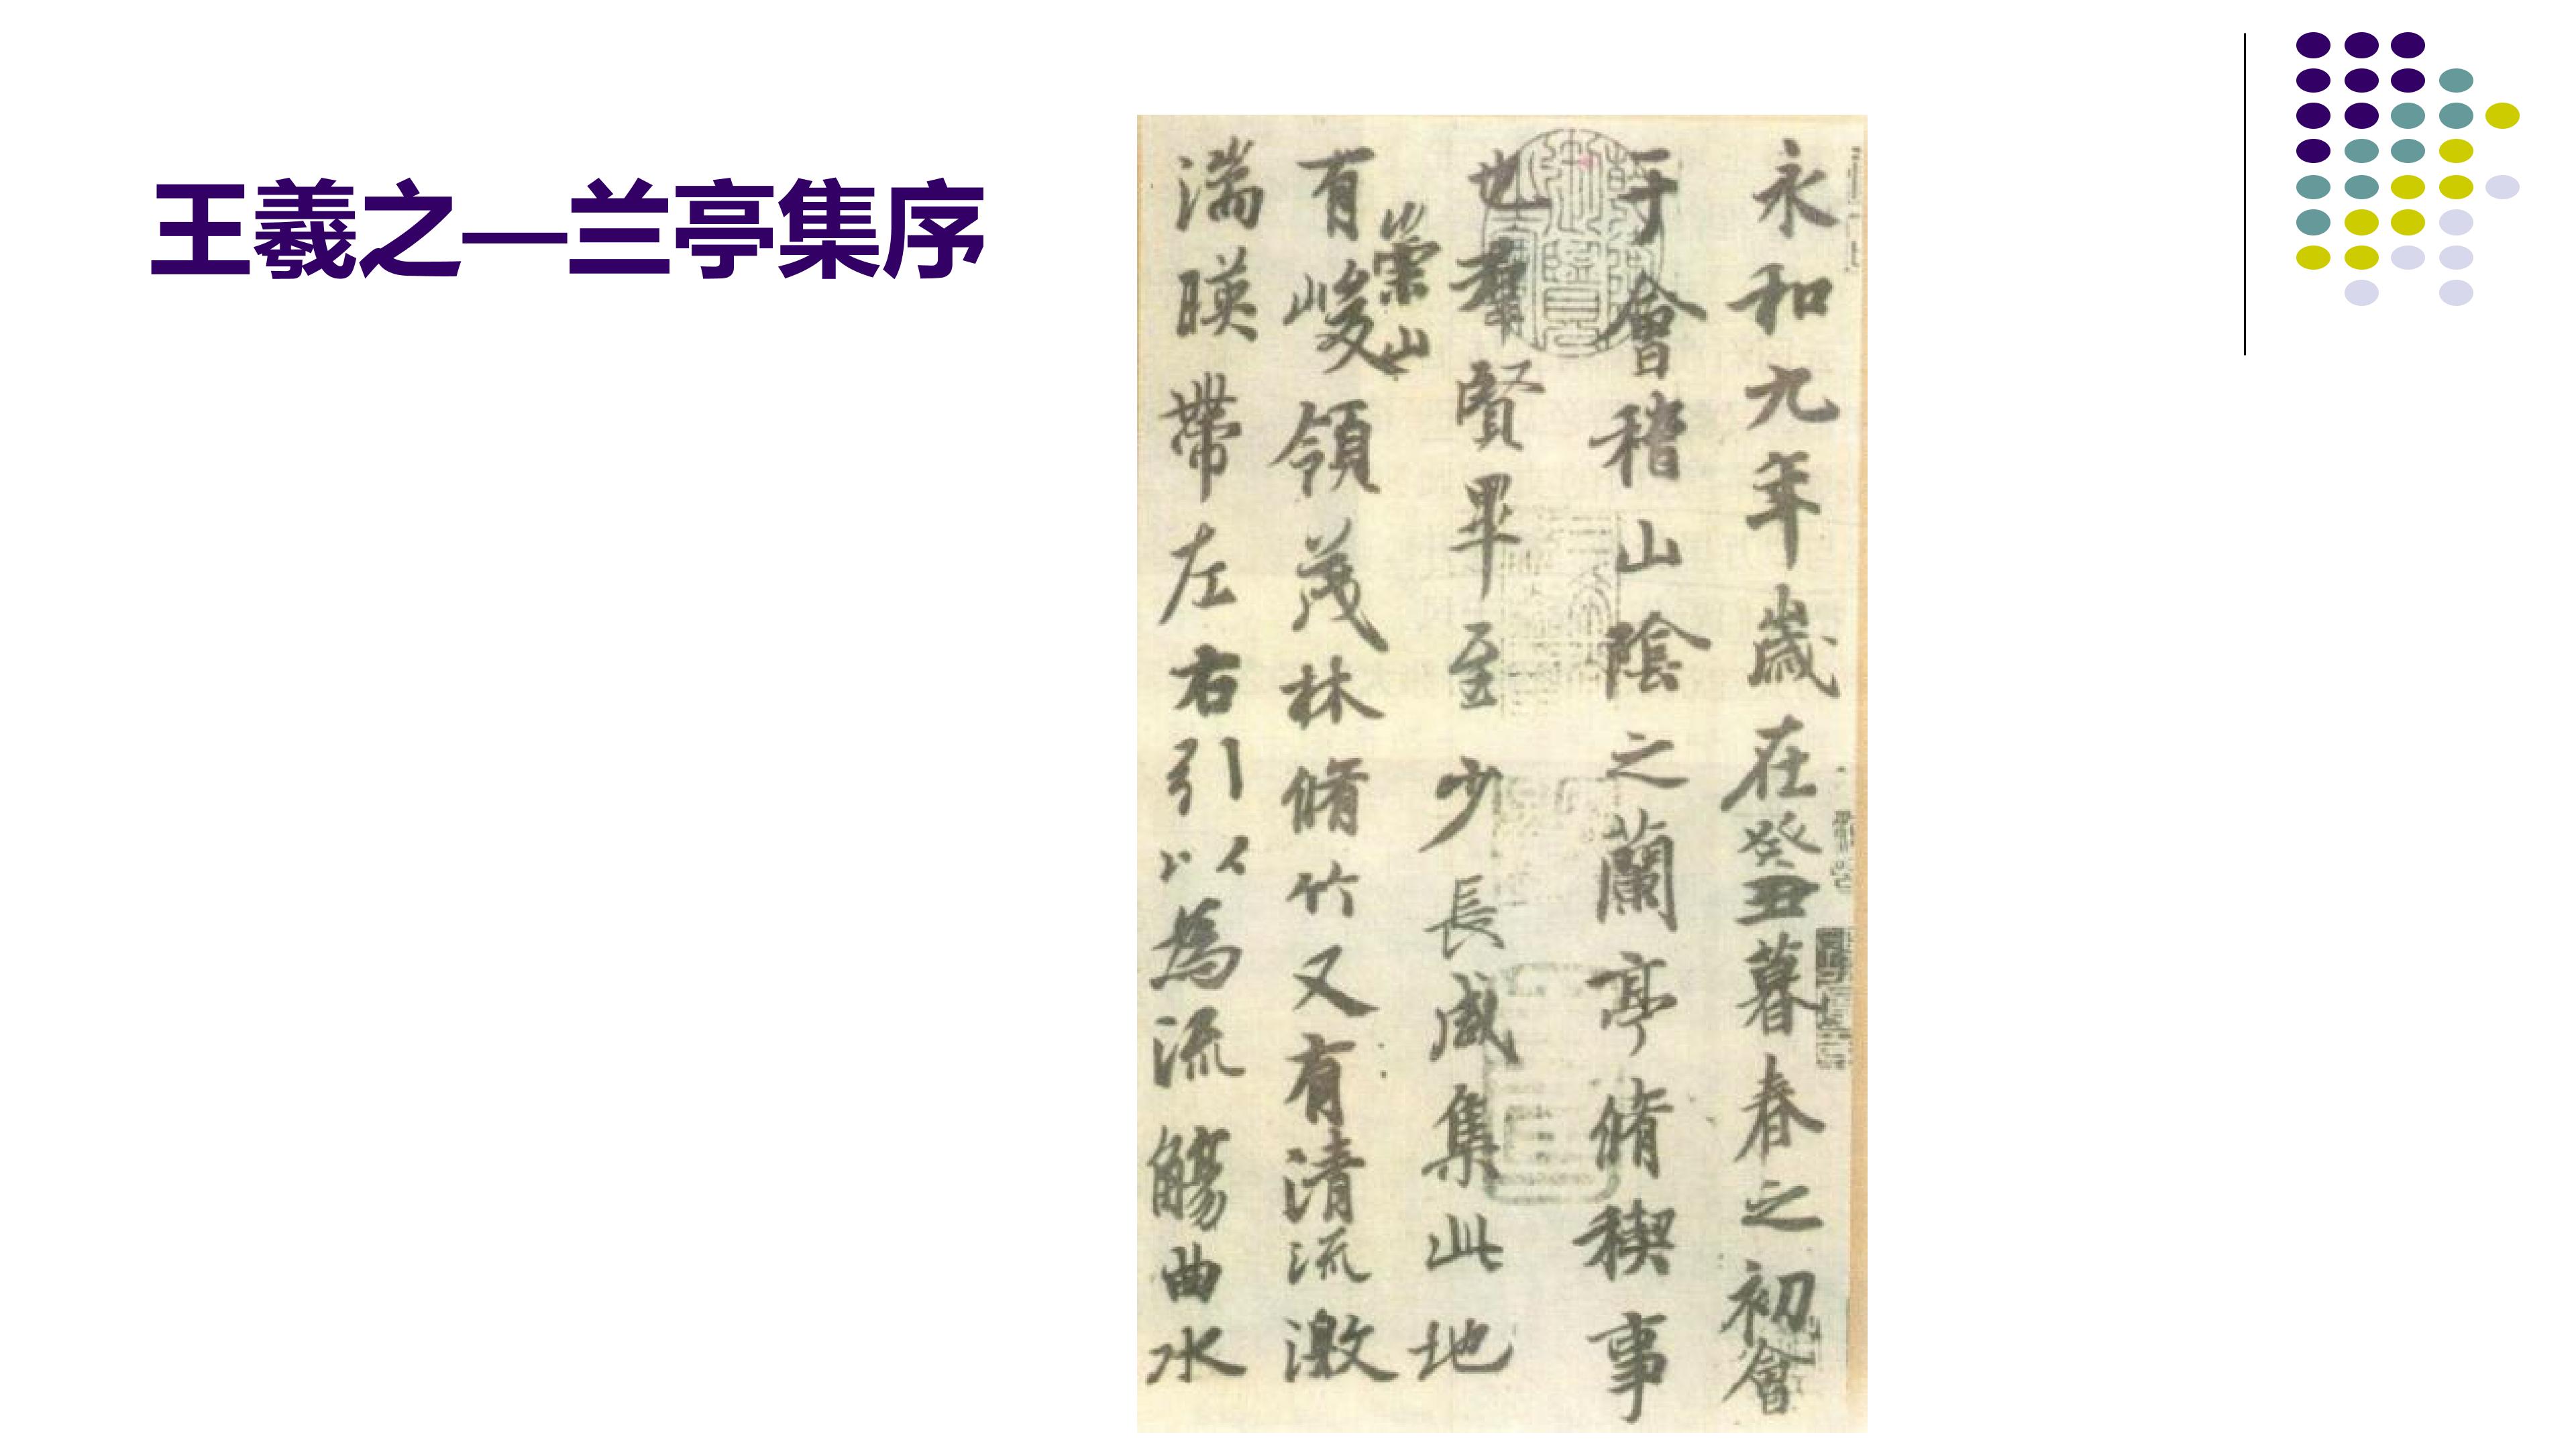 王羲之—兰亭集序
永和九年歲在癸丑暮春之初會
于會稽山陰之蘭亭脩稧事
也羣賢畢至少長咸集此地
有崇山峻領茂林脩竹又有清流激
湍暎帶左右引以爲流觴曲水